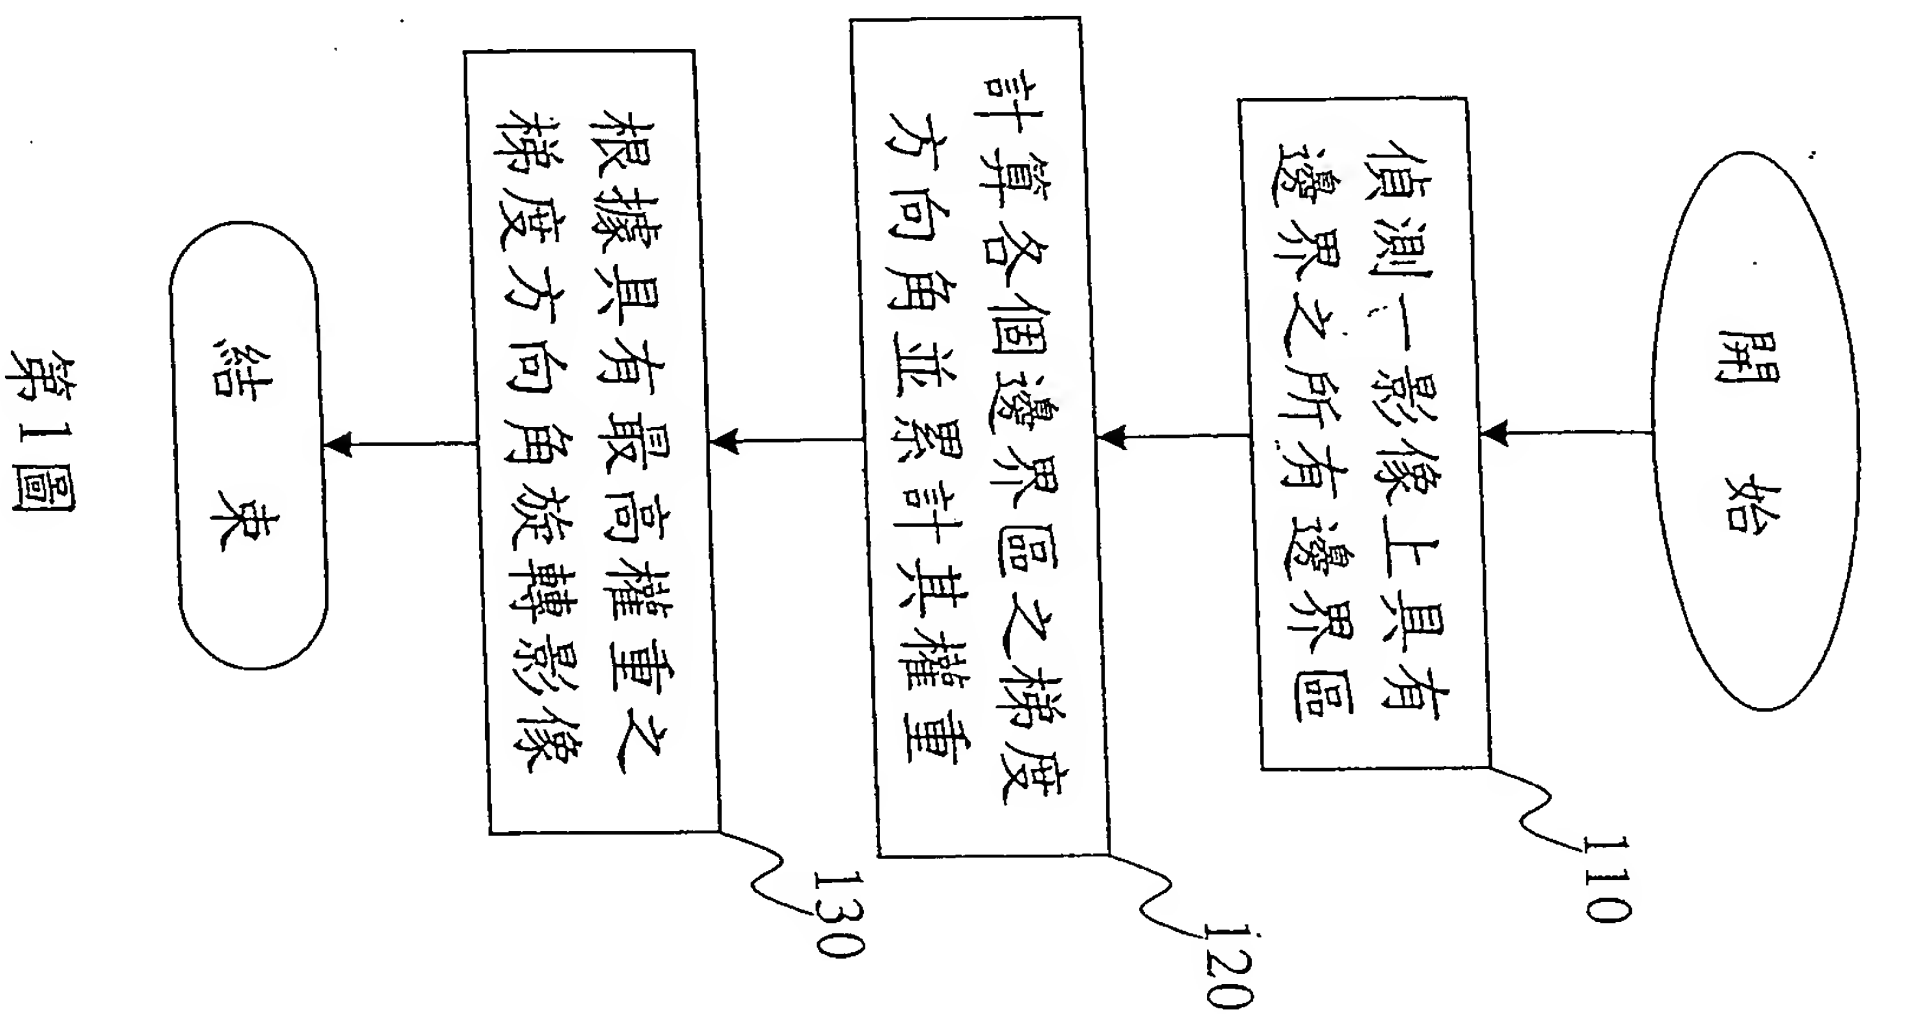 開始
偵測一影像上具有
邊界之所有邊界區
110
計算各個邊界區之梯度
方向角並累計其權重
120
根據具有最高權重之
梯度方向角旋轉影像
130
結束
第1圖